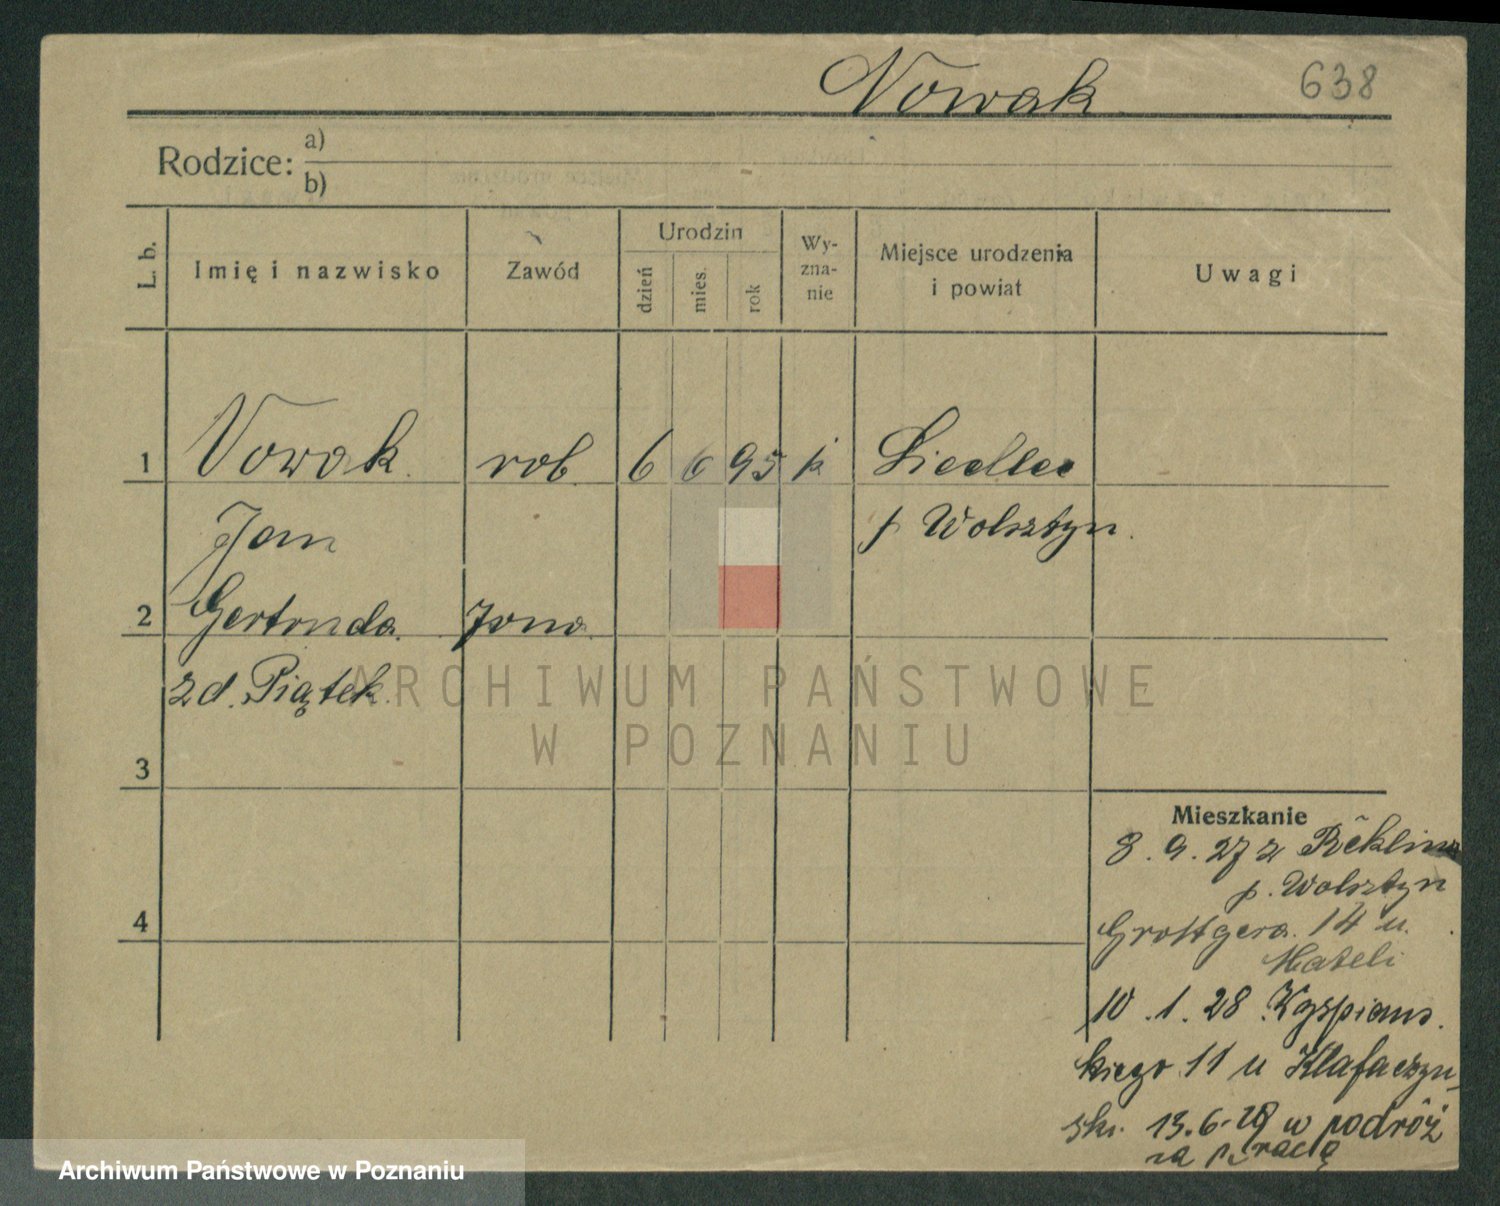 Nowak 638
Rodzice: a)
b)
L. b. Imię i nazwisko Zawód Urodzin dzień mies. rok Wy-zna-nie Miejsce urodzenia i powiat Uwagi
1 Nowak rob. 6 6 95 k Siedlec
Jan p Wolsztyn.
2 Gertruda. żona.
zd. Piątek.
3
Mieszkanie
8. 9. 27 z
p. Wolsztyn
4
Grottgera. 14 u.
Mateli
10. 1. 28 Wyspians.
kiego 11 u Klafaczyn
ski. 13.6. w podróż
za pracą
ARCHIWUM PAŃSTWOWE
W POZNANIU
Archiwum Państwowe w Poznaniu